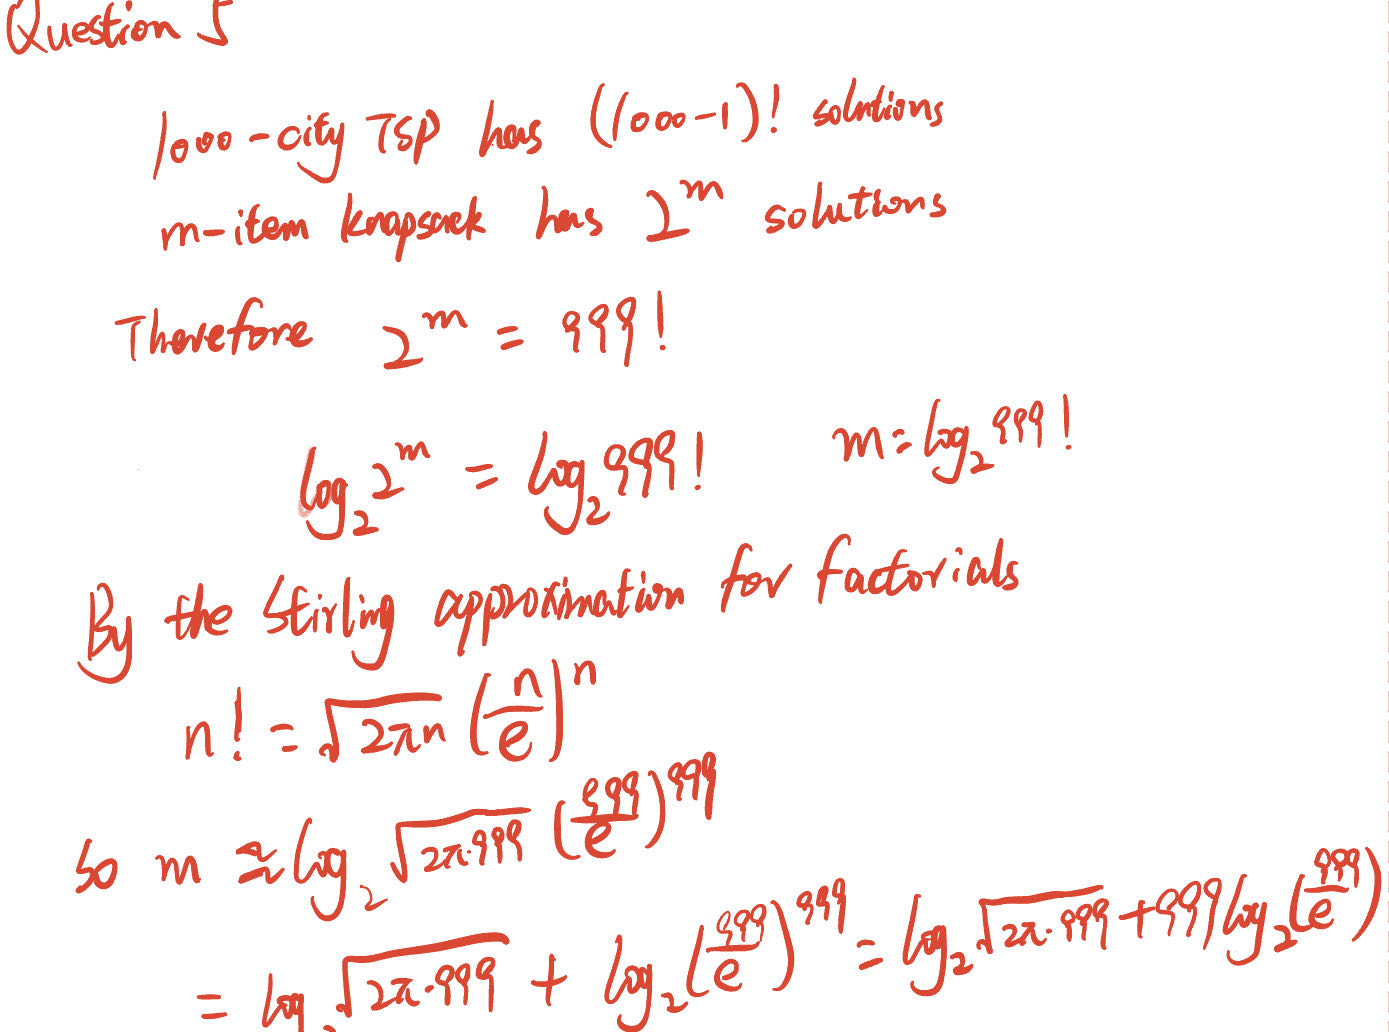 Question 5
1000-city TSP has ((1000-1)! solutions
m-item knapsack has 2^m solutions
Therefore 2^m = 999!
log_2 2^m = log_2 999! m = log_2 999!
By the Stirling approximation for factorials
n! = √(2πn) (n/e)^n
so m ≈ log_2 √(2π·999) (999/e)^999
= log_2 √(2π·999) + log_2 (999/e)^999 = log_2 √(2π·999) + 999 log_2 (999/e)